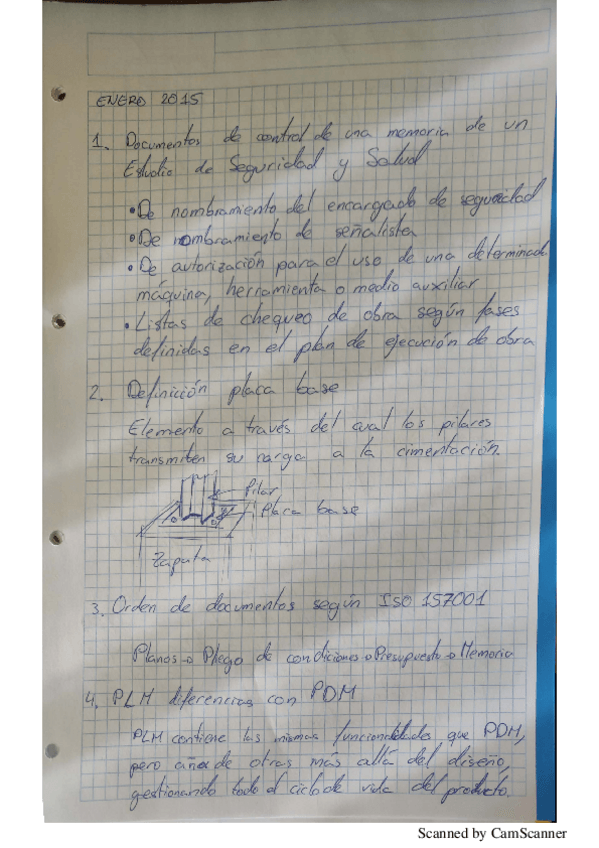 ENERO 2015
1. Documentos de control de una memoria de un
Estudio de Seguridad y Salud
• De nombramiento del encargado de seguridad
• De nombramiento de señalista
• De autorización para el uso de una determinada
máquina, herramienta o medio auxiliar
• Listas de chequeo de obra según fases
definidas en el plan de ejecución de obra
2. Definición placa base
Elemento a través del cual los pilares
transmiten su carga a la cimentación.
Pilar
Placa base
Zapata
3. Orden de documentos según ISO 157001
Planos → Pliego de condiciones → Presupuesto → Memoria
4. PLM diferencias con PDM
PLM contiene las mismas funcionalidades que PDM,
pero añade otras más allá del diseño,
gestionando todo el ciclo de vida del producto.
Scanned by CamScanner